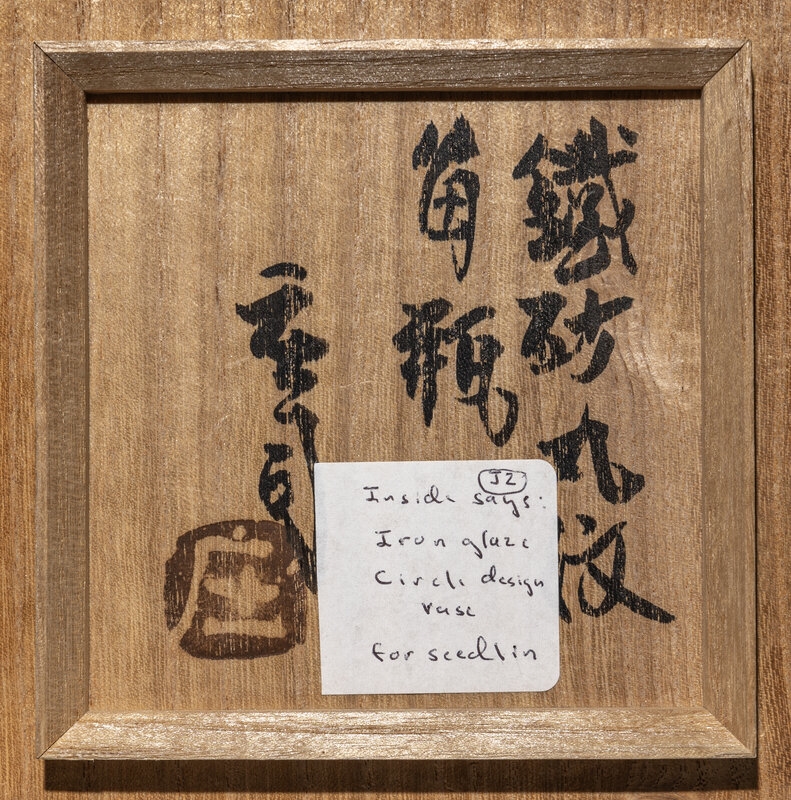 鐵砂丸紋
瓶
庄司
庄
J2
Inside says:
Iron glaze
Circle design
vase
for seedlin